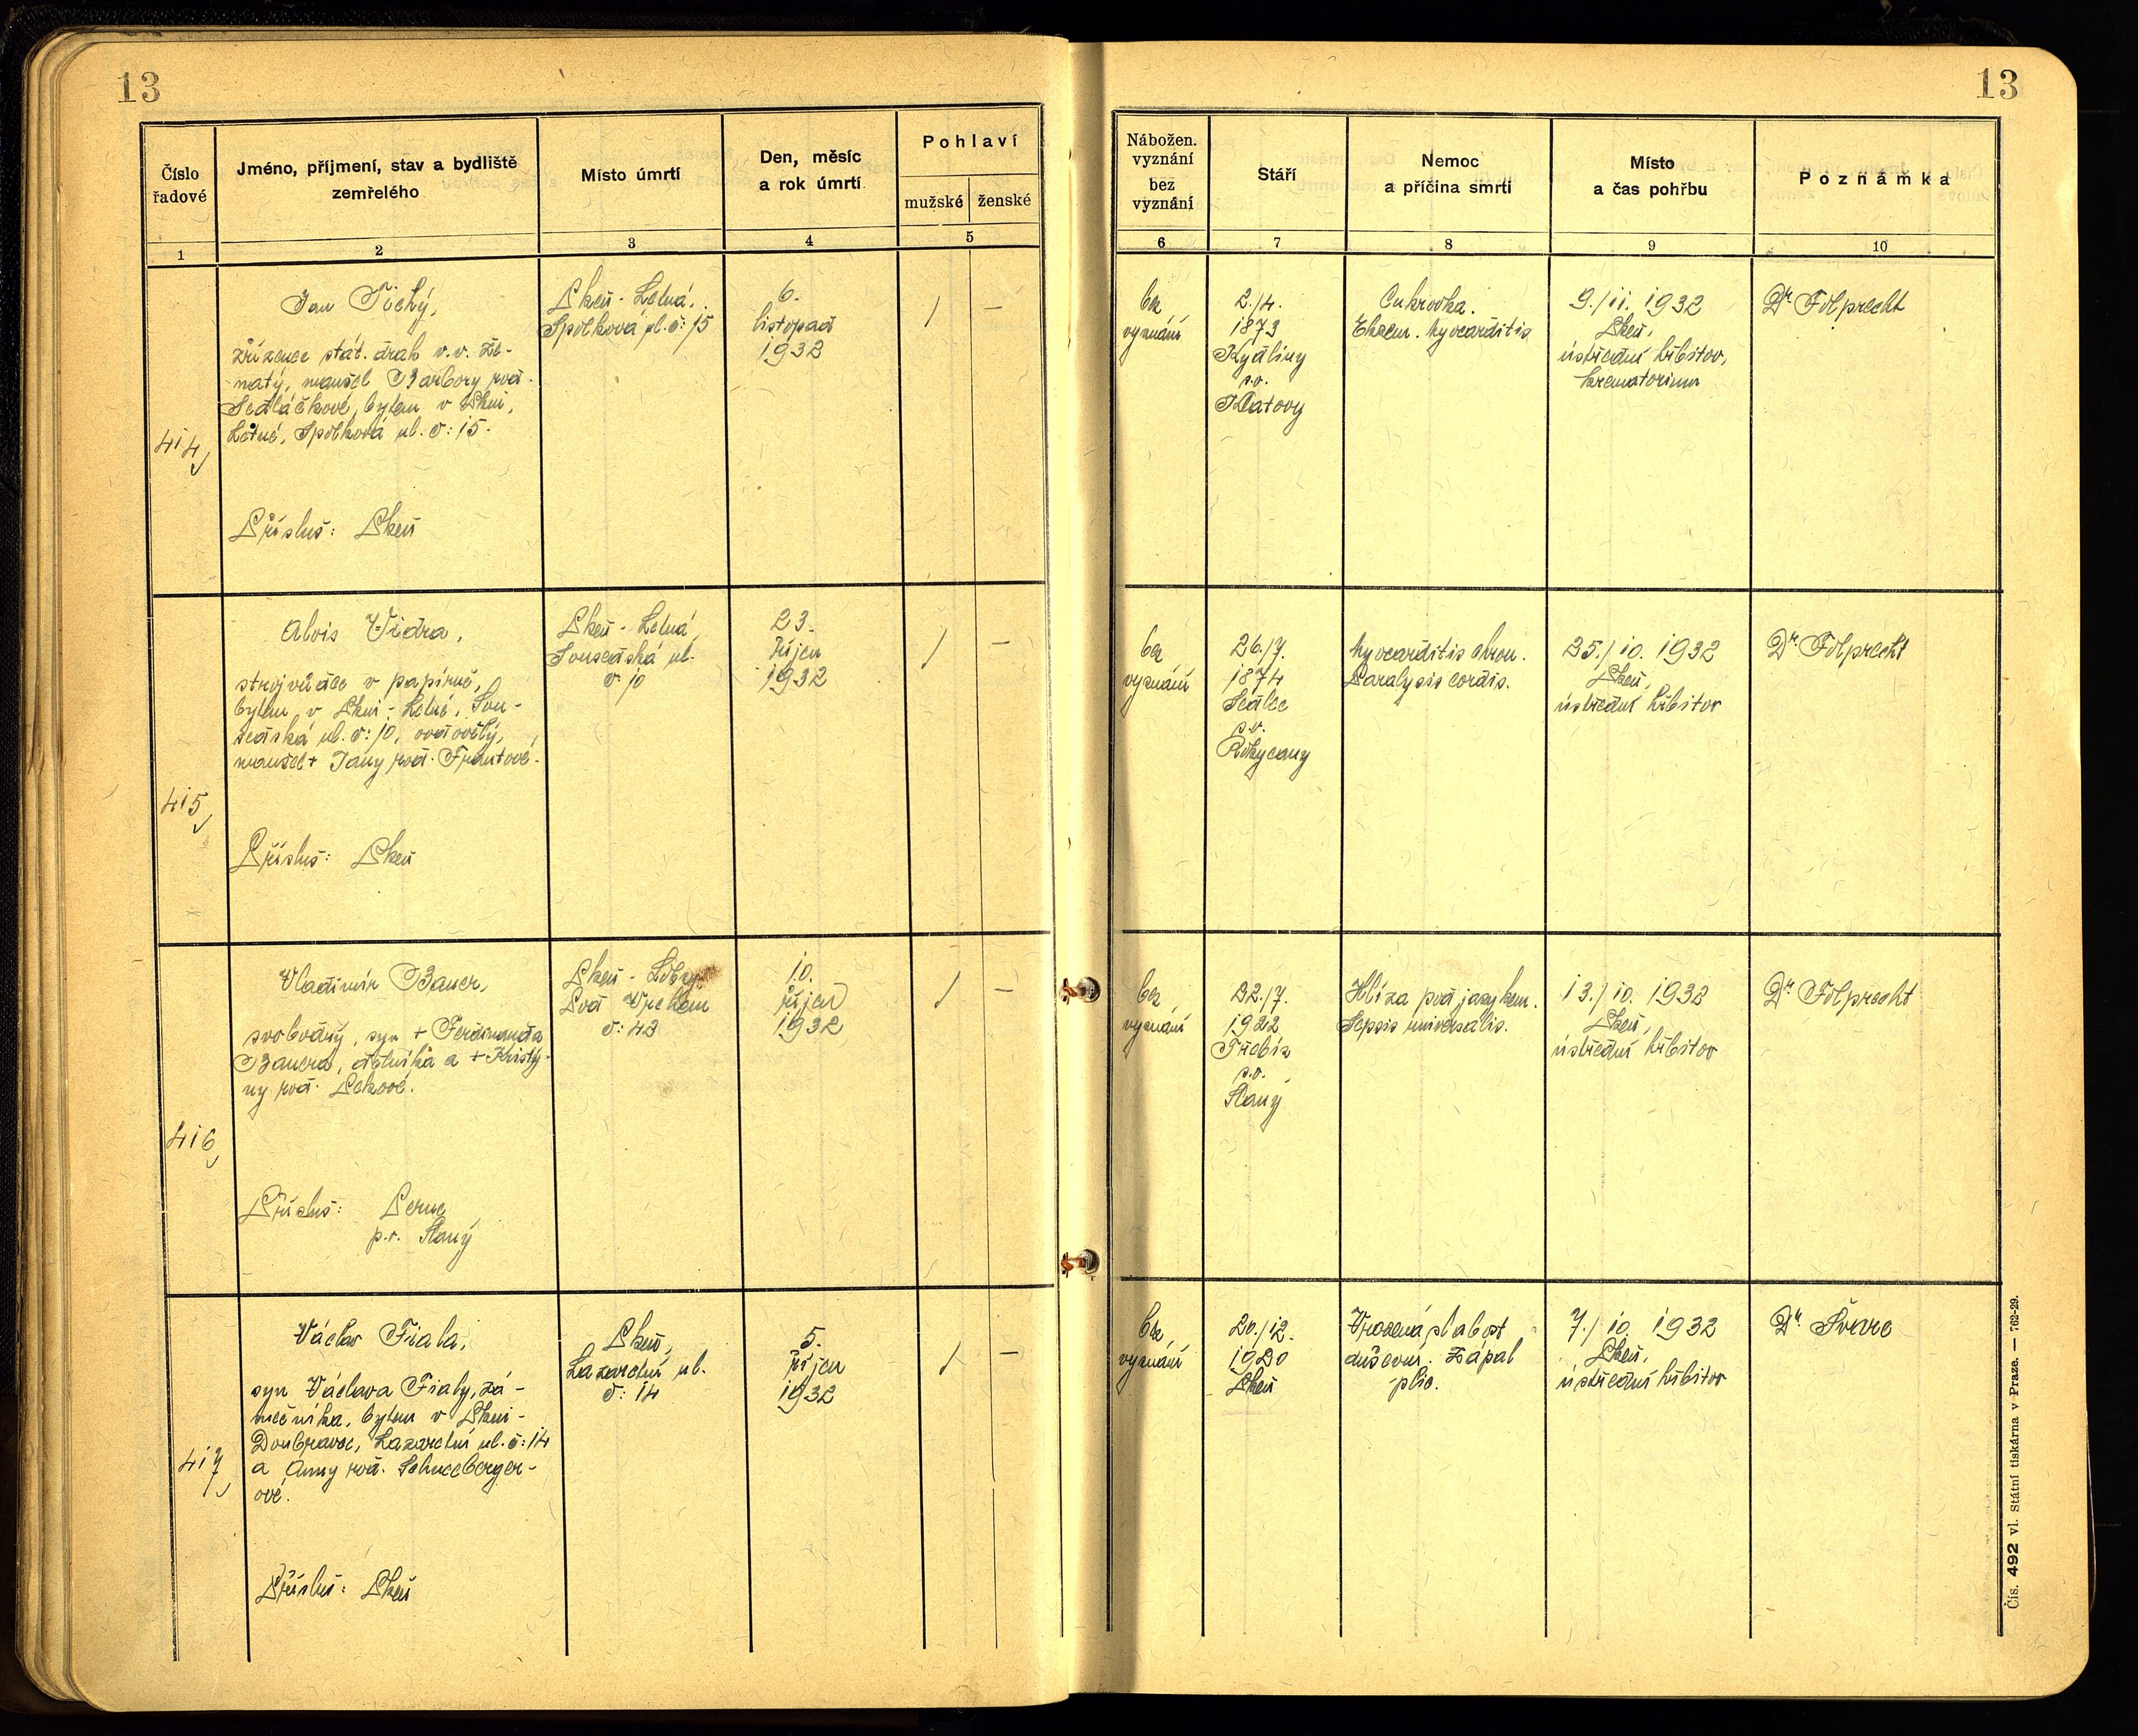 13
13
Číslo řadové
Jméno, příjmení, stav a bydliště zemřelého
Místo úmrtí
Den, měsíc a rok úmrtí
Pohlaví
mužské
ženské
1
2
3
4
5
Nábožen. vyznání bez vyznání
Stáří
Nemoc a příčina smrti
Místo a čas pohřbu
Poznámka
6
7
8
9
10
414
Jan Tichý,
zřízenec stát. drah v.v. že-
natý, manžel Barbory roz.
Sedláčkové, bytem v Plzni,
Letné, Spolková ul. č: 15.
Přísluš: Plzeň
Plzeň - Letná,
Spolková ul. č: 15
6.
listopad
1932
/
—
bez
vyznání
2./4.
1873
Kydliny
p.o.
Klatovy
Cukrovka.
myocarditis
9./11. 1932
Plzeň,
ústřední hřbitov,
krematorium
Dr Folprecht
415
Alois Vidra,
strojvůdce v papírně,
bytem v Plzni - Letné, Sou-
sedská ul. č: 10, ovdovělý,
manžel + Jany roz. Frantové.
Přísluš: Plzeň
Plzeň - Letná,
Sousedská ul.
č: 10
23.
říjen
1932
/
—
bez
vyznání
26./7.
1874
Sedlec
p.o.
Rokycany
Myocarditis chron.
Paralysis cordis.
25./10. 1932
Plzeň,
ústřední hřbitov
Dr Folprecht
416
Vladimír Bauer,
svobodný, syn + Ferdinanda
Bauera, dělníka a + Kristý-
ny roz.
Přísluš:
p.o. Slaný
Plzeň - Lobzy
Pod Vrchem
č: 42
10.
říjen
1932
/
—
bez
vyznání
22./7.
1922
Třebíz
p.o.
Slaný
Hlíza pod jazykem.
Sepsis universalis.
13./10. 1932
Plzeň,
ústřední hřbitov
Dr Folprecht
417
Václav Fiala,
syn Václava Fialy, zá-
mečníka, bytem v Plzni -
Doubravce, Lazaretní ul. č: 14
a Anny roz. Schneeberger-
ové.
Přísluš: Plzeň
Plzeň,
Lazaretní ul.
č: 14
5.
říjen
1932
/
—
bez
vyznání
20./12.
1920
Plzeň
Vrozená slabost
duševní. Zápal
plic.
7./10. 1932
Plzeň,
ústřední hřbitov
Dr Švarc
Čís. 492 vl. Státní tiskárna v Praze. — 762-29.